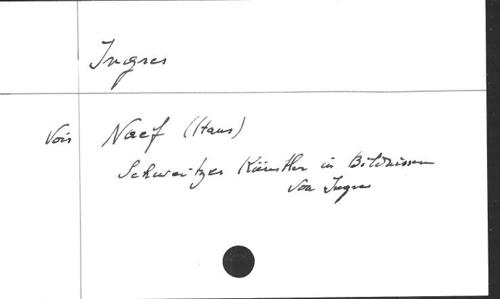 Ingres
Vois Naef (Hans)
Schweitzer Künstler in Bildnissen
von Ingres